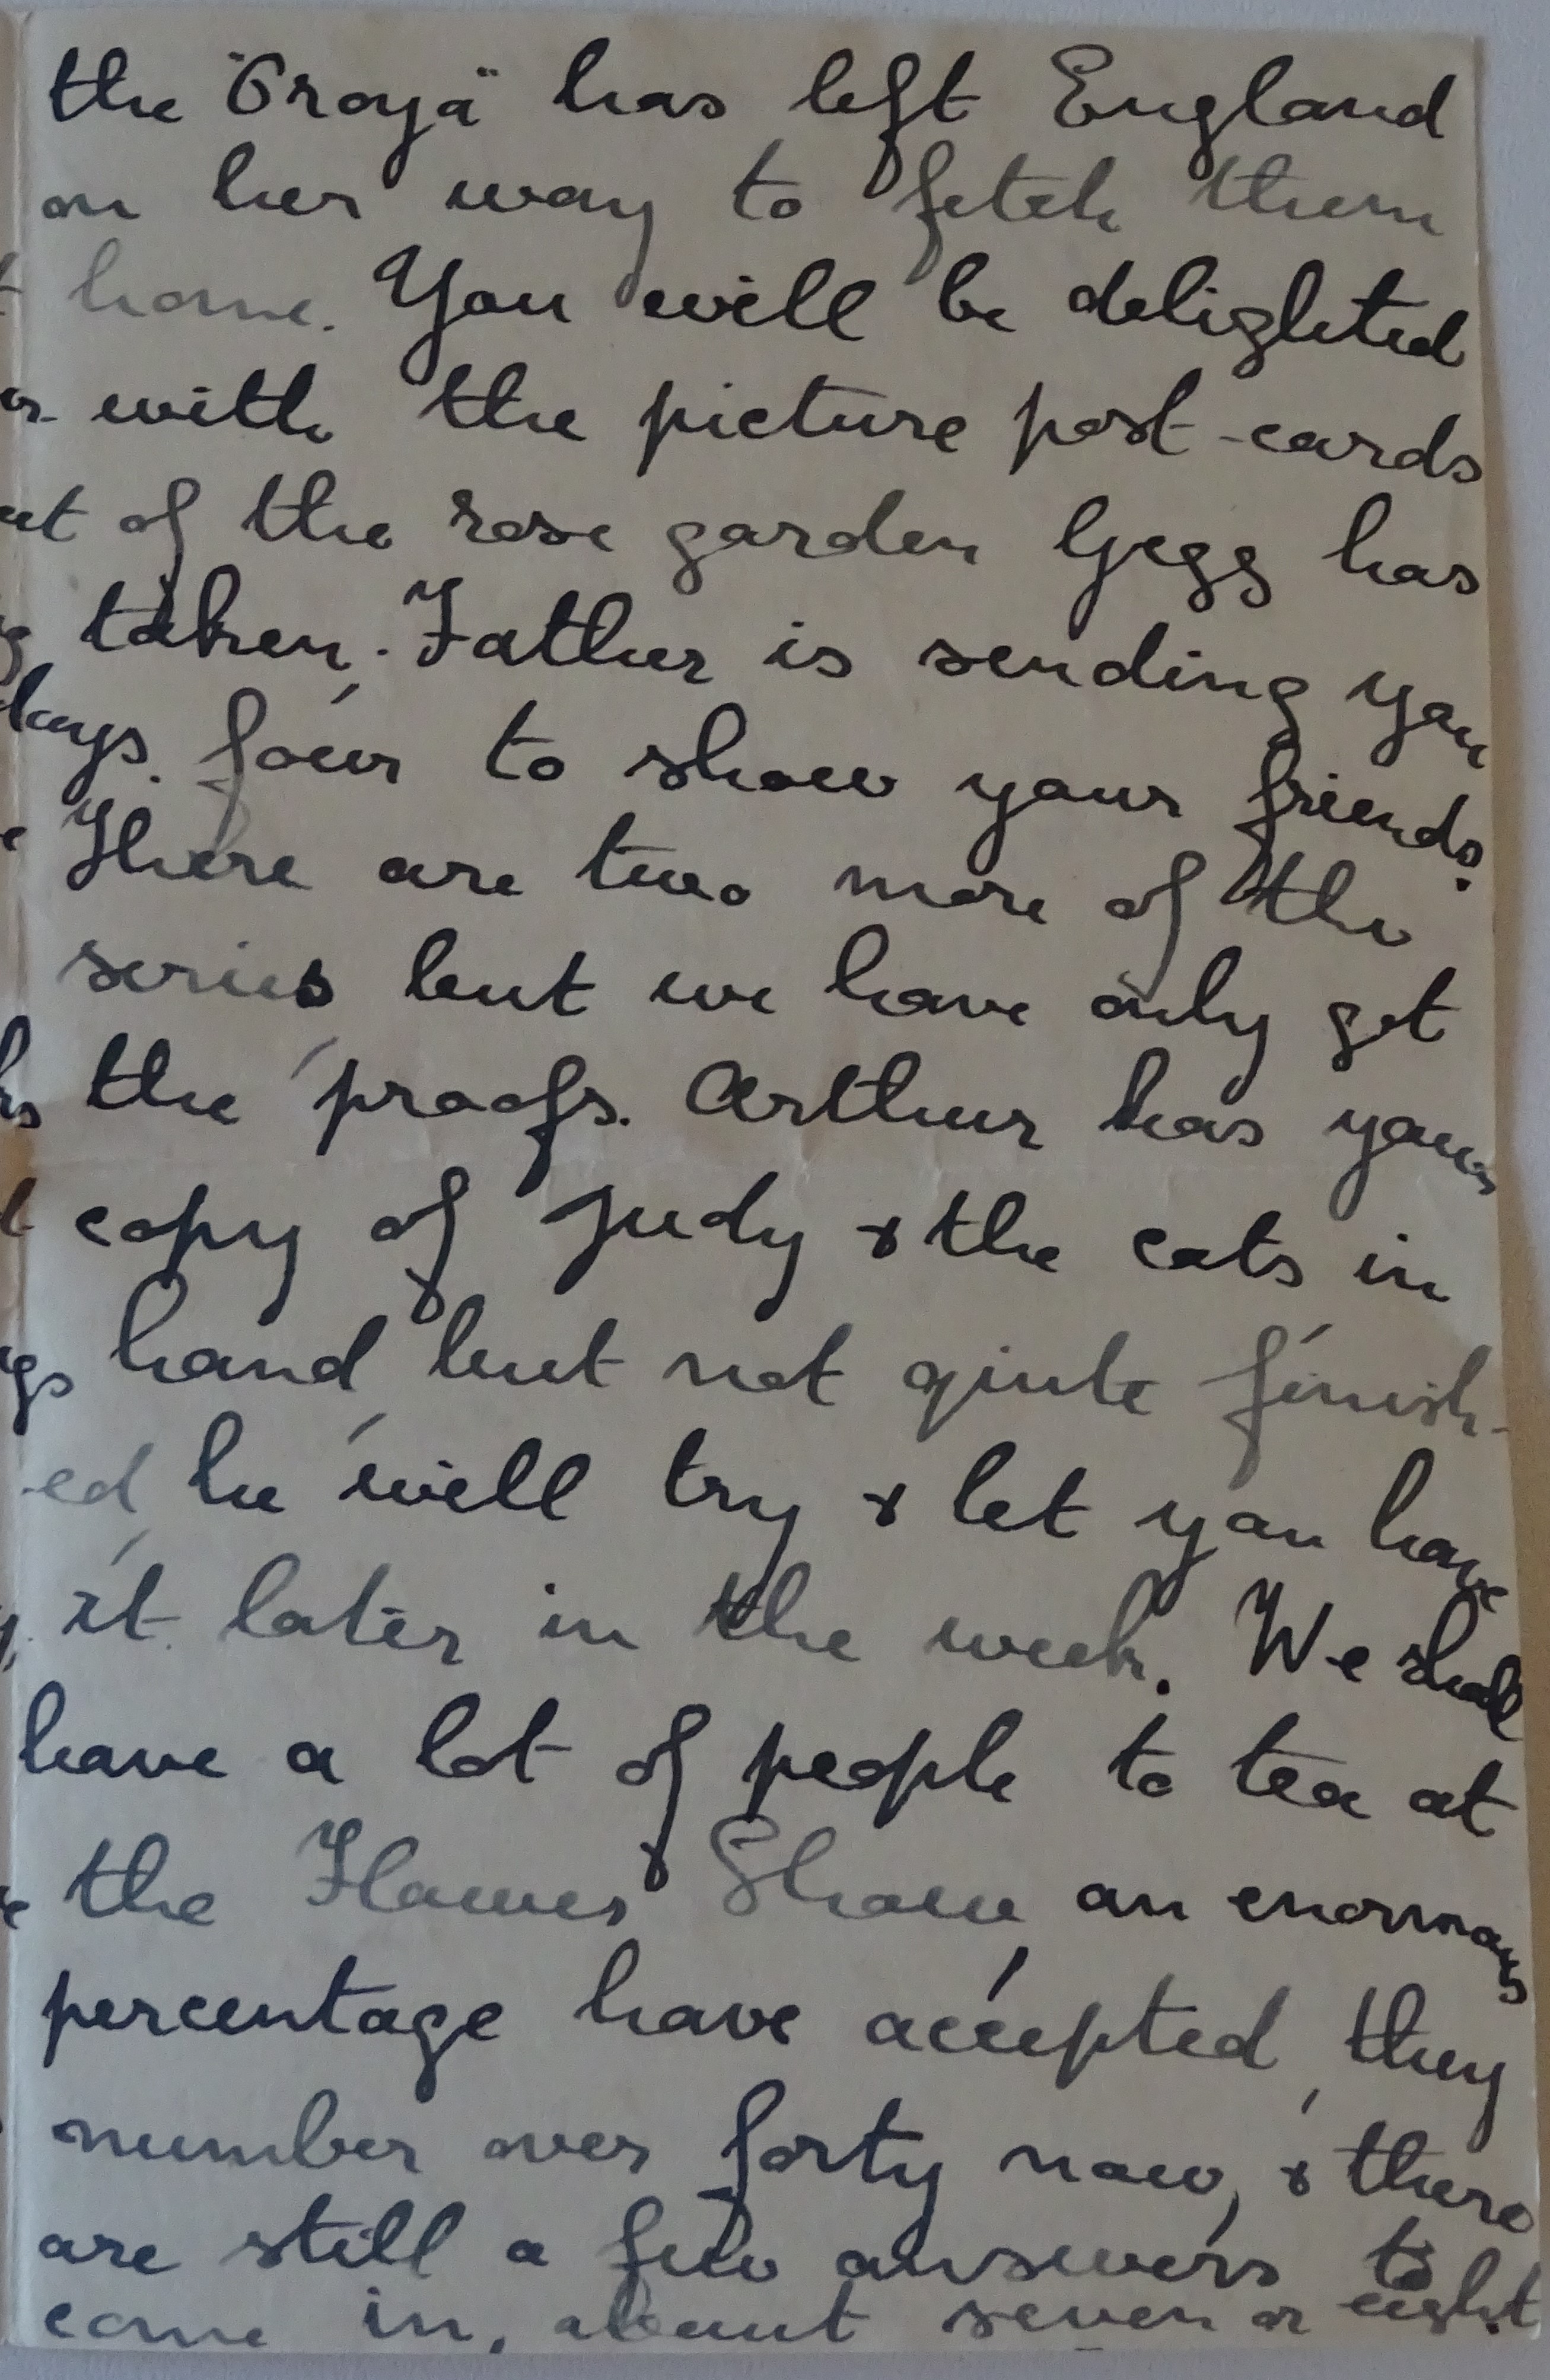 the "Oroya" has left England
on her way to fetch them
home. You will be delighted
with the picture post-cards
of the rose garden Gegg has
taken. Father is sending you
four to show your friends.
There are two more of the
series but we have only got
the proofs. Arthur has your
copy of Judy & the cats in
hand but not quite finish-
-ed, he will try & let you have
it later in the week. We shall
have a lot of people to tea at
the Flower Show, an enormous
percentage have accepted, they
number over forty now, & there
are still a few answers to
come in, about seven or eight